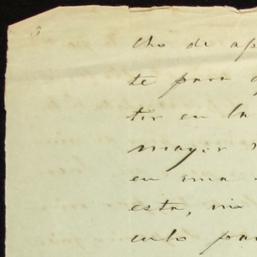 cho de ap
te para
tir en la
mayor
en una
esta, mi
culo par